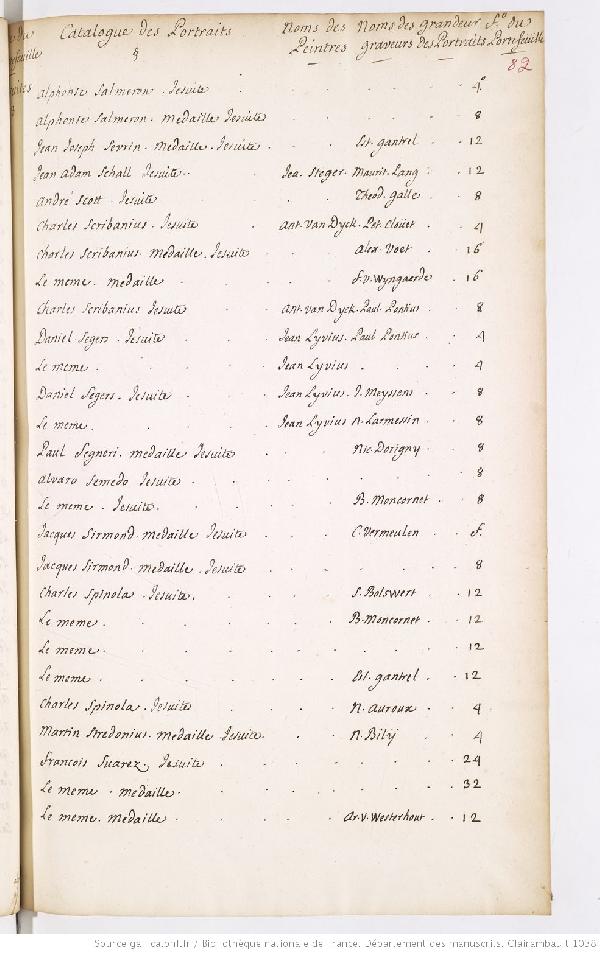 Catalogue des Portraits Noms des Noms des grandeur f.º du
§ Peintres graveurs des Portraits Portefeuille
82
Alphonse Salmeron . Jesuite . . . . 4º
Alphonse Salmeron . medaille Jesuite . . . . 8
Jean Joseph Serrin . Medaille . Jesuite . . . St. gantrel . 12
Jean Adam Schall Jesuite . . Joa. Steger . Maurit. Lang . 12
André Scott . Jesuite . . . Theod. galle . 8
Charles Scribanius . Jesuite . Ant. Van Dyck . Pet. Clouet . 4
Charles Scribanius . Medaille . Jesuite . . Alex. Voet . 16
Le meme . medaille . . . f. v. Wyngaerde . 16
Charles Scribanius Jesuite . Ant. van Dyck . Paul . Pontius . 8
Daniel Segers . Jesuite . . Jean Lyvius . Paul Pontius . 4
Le meme . . . Jean Lyvius . . 4
Daniel Segers . Jesuite . . Jean Lyvius . J. Meyssens . 8
Le meme . . . Jean Lyvius N. Larmessin . 8
Paul Segneri . medaille Jesuite . . . Nic. Dorigny . 8
Alvaro Semedo Jesuite . . . . 8
Le meme . Jesuite . . . B. Moncornet . 8
Jacques Sirmond . medaille Jesuite . . . C. Vermeulen . f.
Jacques Sirmond . medaille . Jesuite . . . . 8
Charles Spinola . Jesuite . . . S. Bolswert . 12
Le meme . . . B. Moncornet . 12
Le meme . . . . 12
Le meme . . . St. gantrel . 12
Charles Spinola . Jesuite . . . N. Auroux . 4
Martin Stredonius . medaille Jesuite . . . N. Bilÿ . 4
François Suarez , Jesuite . . . . 24
Le meme . medaille . . . . 32
Le meme . medaille . . . Ar. V. Westerhout . 12
Source gallica.bnf.fr / Bibliothèque nationale de France. Département des manuscrits. Clairambault 1038